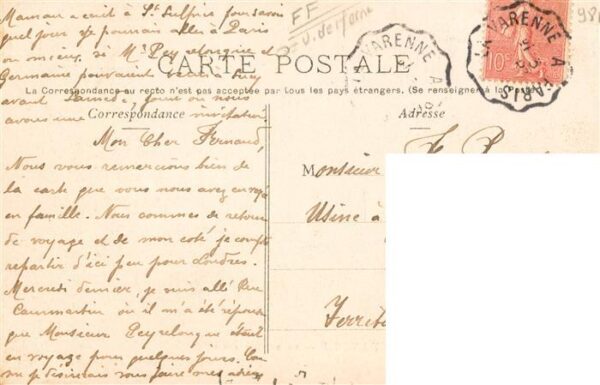 Maman a écrit à St Sulpice pour savoir
quel jour je pourrais aller à Paris
ou mieux, si Mr Peyrelongue et
Germaine pouvaient venir
avant Samedi, jour où nous
avons une invitation.
FF
CARTE POSTALE
La Correspondance au recto n'est pas acceptée par tous les pays étrangers. (Se renseigner à la Poste)
Correspondance
Adresse
LA VARENNE A PARIS
VARENNE A
10c
Mon Cher Fernand,
Nous vous remercions bien de
la carte que vous nous avez envoyé
en famille. Nous sommes de retour
de voyage et de mon coté je compte
repartir d'ici peu pour Londres.
Mercredi dernier, je suis allé Rue
Caumartin où il m'a été répondu
que Monsieur Peyrelongue était
en voyage pour quelques jours.
je désirerais vous faire mes
Monsieur
Usine à
Territo